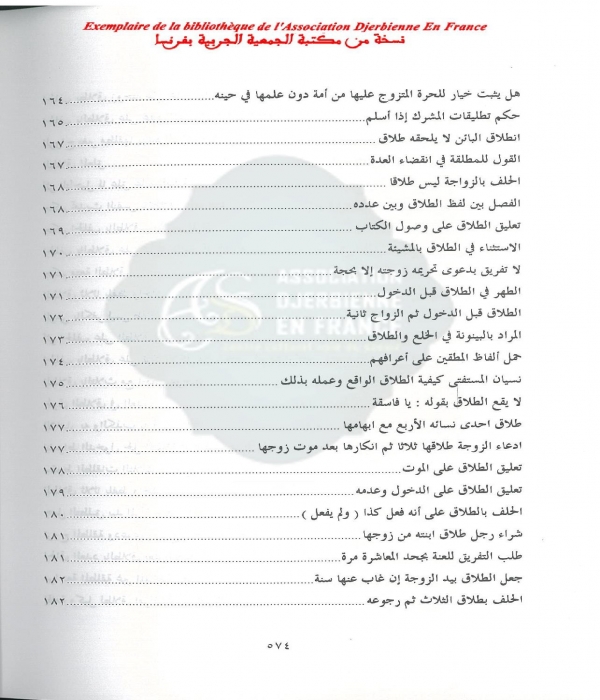 Exemplaire de la bibliothèque de l'Association Djerbienne En France
نسخة من مكتبة الجمعية الجربية بفرنسا
هل يثبت خيار للحرة المتزوج عليها من أمة دون علمها في حينه ١٦٤
حكم تطليقات المشرك إذا أسلم ١٦٥
انطلاق البائن لا يلحقه طلاق ١٦٧
القول للمطلقة في انقضاء العدة ١٦٧
الحلف بالزواجة ليس طلاقا ١٦٨
الفصل بين لفظ الطلاق وبين عدده ١٦٨
تعليق الطلاق على وصول الكتاب ١٦٩
الاستثناء في الطلاق بالمشيئة ١٧٠
لا تفريق بدعوى تحريمه زوجته إلا بحجة ١٧١
الطهر في الطلاق قبل الدخول ١٧١
الطلاق قبل الدخول ثم الزواج ثانية ١٧٢
المراد بالبينونة في الخلع والطلاق ١٧٣
حمل ألفاظ المطقين على أعرافهم ١٧٤
نسيان المستفتي كيفية الطلاق الواقع وعمله بذلك ١٧٥
لا يقع الطلاق بقوله : يا فاسقة ١٧٦
طلاق احدى نسائه الأربع مع ابهامها ١٧٧
ادعاء الزوجة طلاقها ثلاثا ثم انكارها بعد موت زوجها ١٧٧
تعليق الطلاق على الموت ١٧٨
تعليق الطلاق على الدخول وعدمه ١٧٩
الحلف بالطلاق على أنه فعل كذا ( ولم يفعل ) ١٨٠
شراء رجل طلاق ابنته من زوجها ١٨١
طلب التفريق للعنة بجحد المعاشرة مرة ١٨١
جعل الطلاق بيد الزوجة إن غاب عنها سنة ١٨٢
الحلف بطلاق الثلاث ثم رجوعه ١٨٢
٥٧٤
ASSOCIATION
DJERBIENNE
EN FRANCE